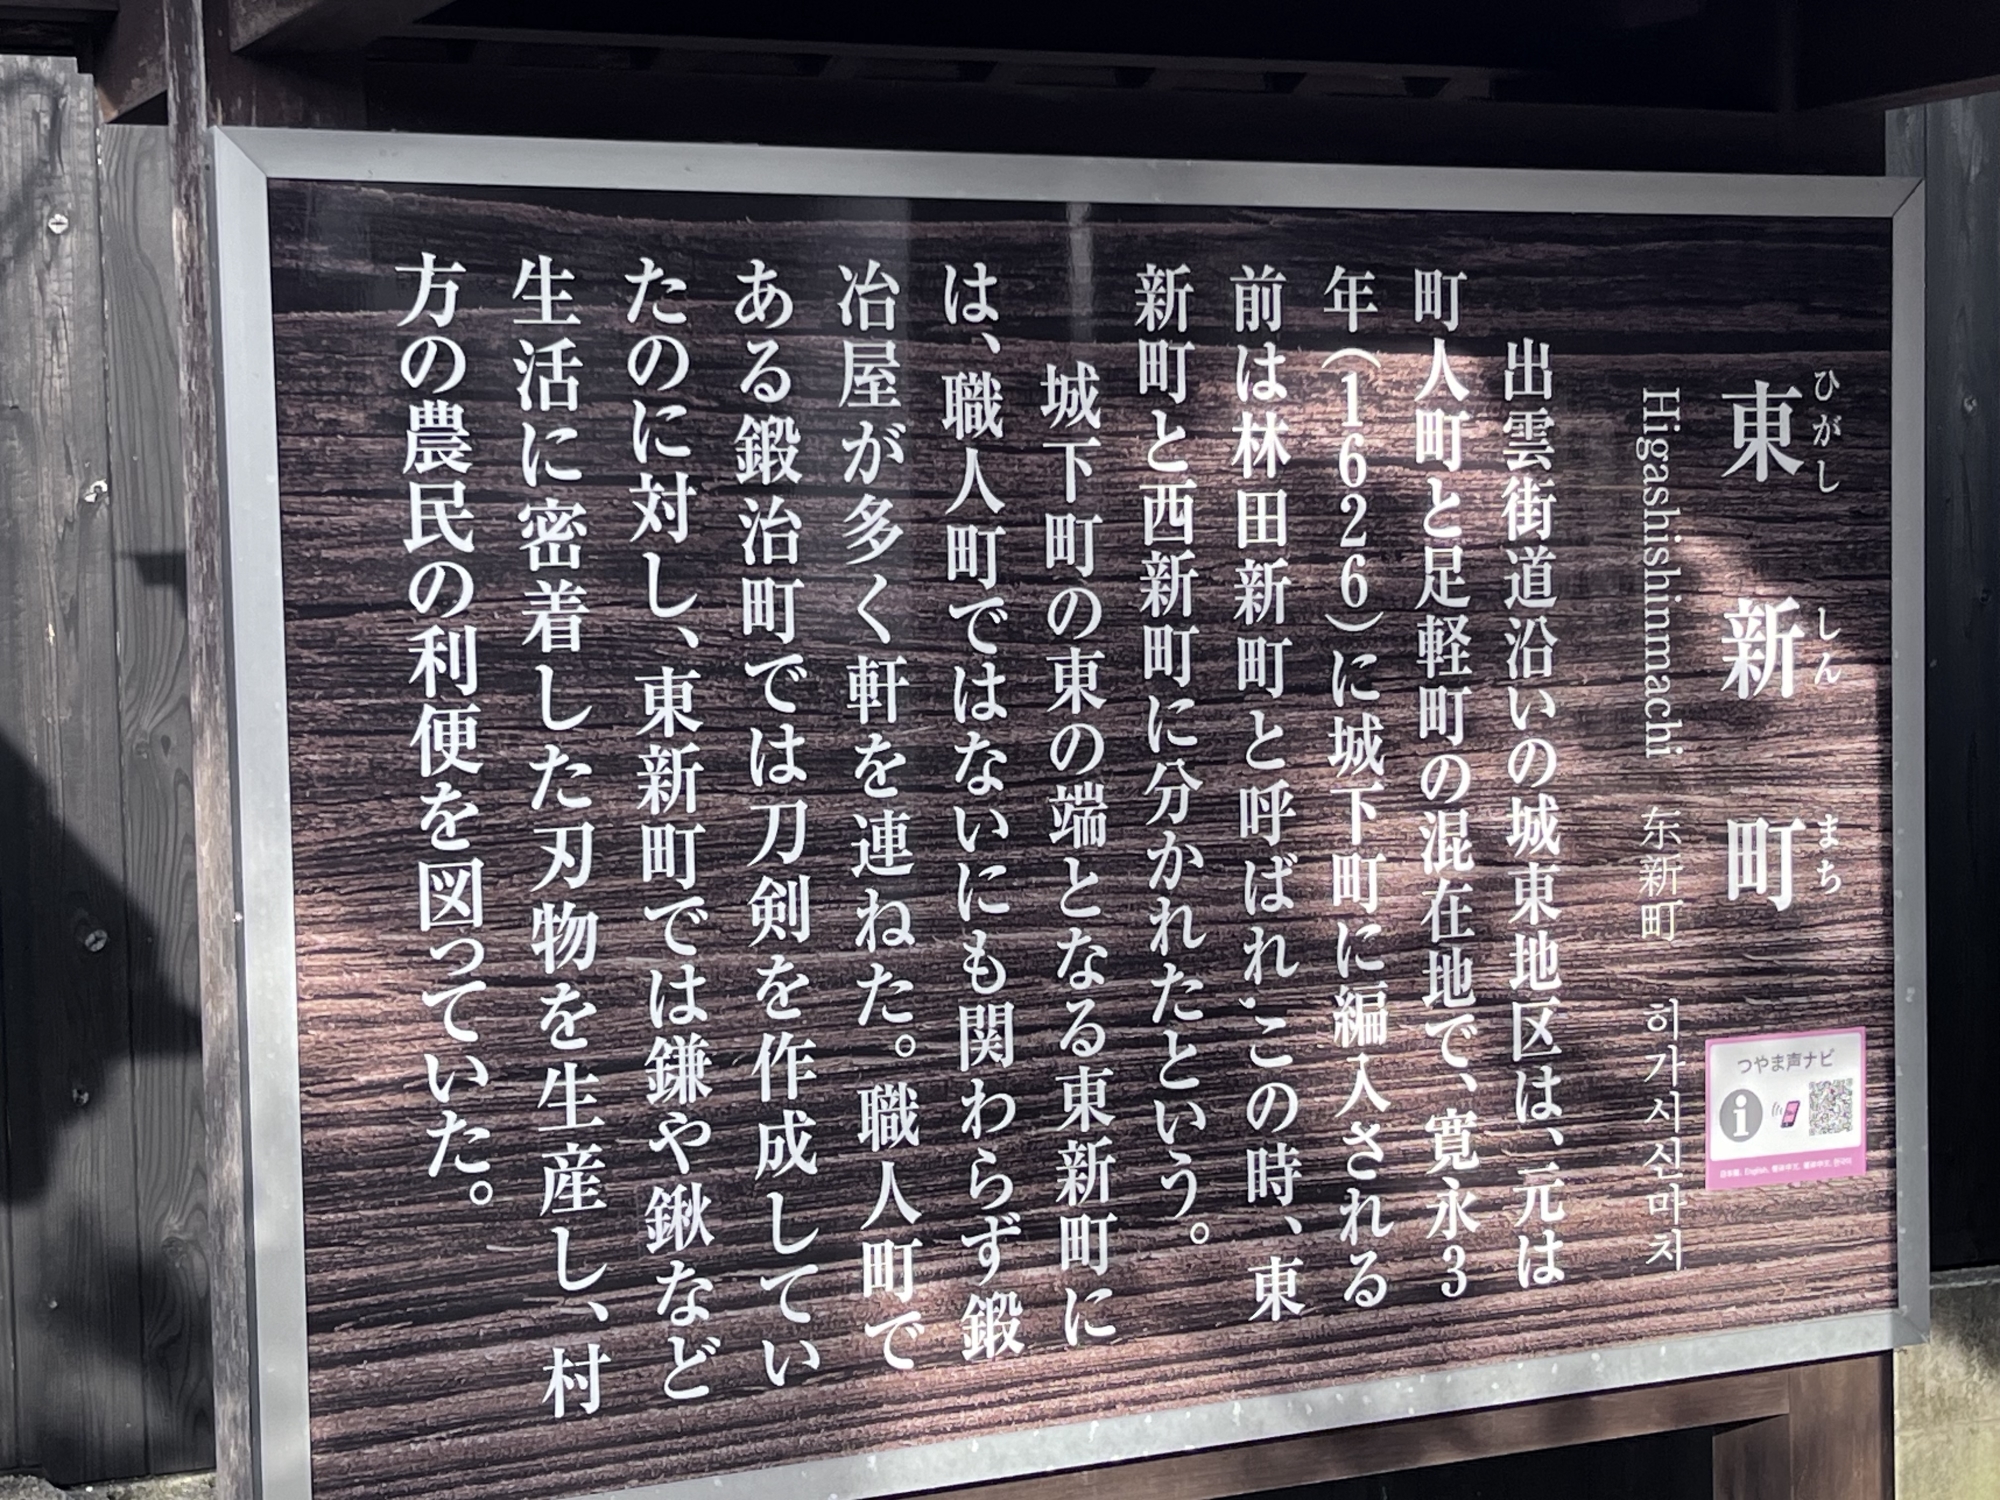 東新町
ひがし しん まち
Higashishinmachi 东新町 히가시신마치
出雲街道沿いの城東地区は、元は
町人町と足軽町の混在地で、寛永3
年(1626)に城下町に編入される
前は林田新町と呼ばれ、この時、東
新町と西新町に分かれたという。
城下町の東の端となる東新町に
は、職人町ではないにも関わらず鍛
冶屋が多く軒を連ねた。職人町で
ある鍛冶町では刀剣を作成してい
たのに対し、東新町では鎌や鍬など
生活に密着した刃物を生産し、村
方の農民の利便を図っていた。
つやま声ナビ